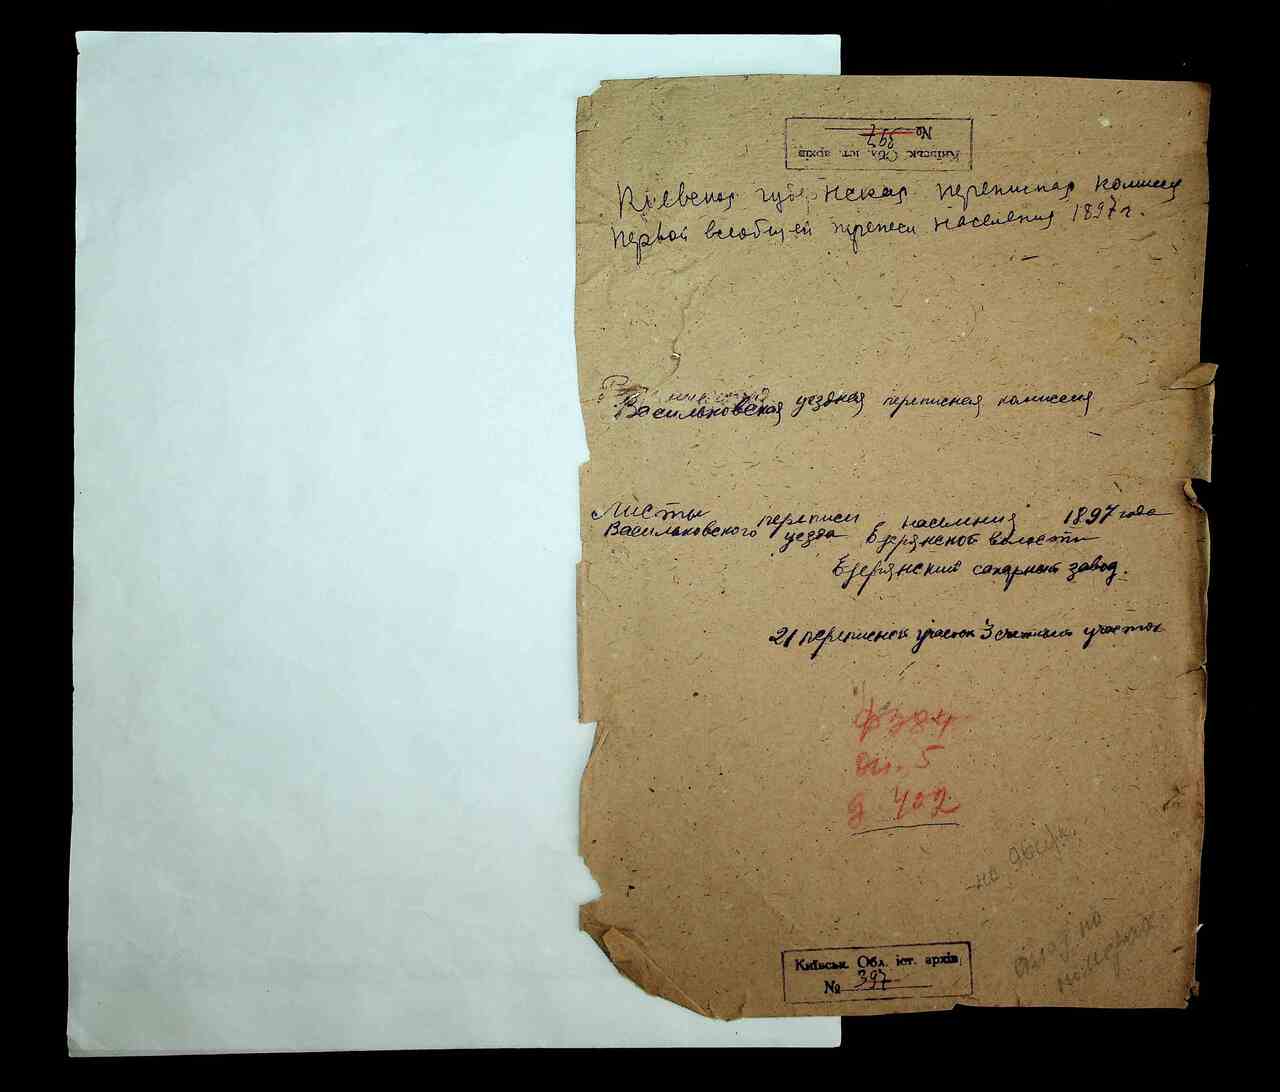 Київськ. Обл. іст. архів
№ 397
Киевская губернская переписная комисия
первой всеобщей переписи населения 1897 г.
Васильковская уездная переписная комиссия
Листы переписи населения 1897 года
Васильковского уезда Езерянской волости
Езерянский сахарный завод.
21 переписной участок 3 счетный участок
ф 384
оп. 5
д 402
Київськ. Обл. іст. архів
№ 397